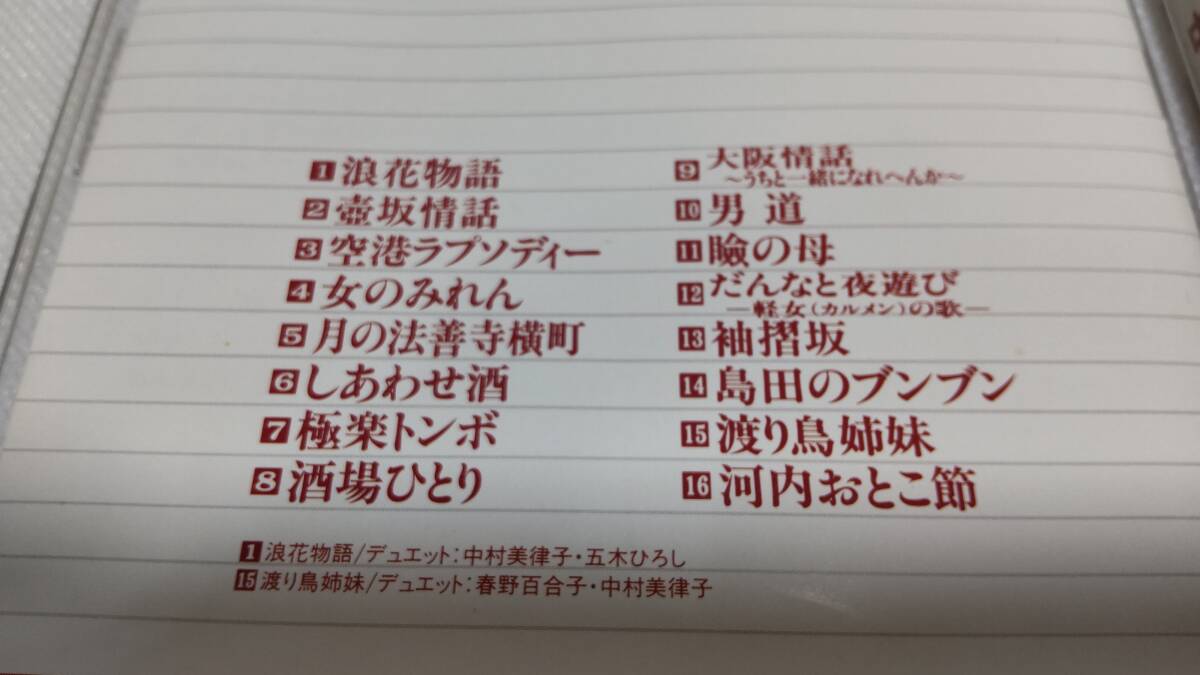 1 浪花物語
2 壺坂情話
3 空港ラプソディー
4 女のみれん
5 月の法善寺横町
6 しあわせ酒
7 極楽トンボ
8 酒場ひとり
9 大阪情話
～うちと一緒になれへんか～
10 男道
11 瞼の母
12 だんなと夜遊び
―軽女(カルメン)の歌―
13 袖摺坂
14 島田のブンブン
15 渡り鳥姉妹
16 河内おとこ節
1 浪花物語/デュエット:中村美律子・五木ひろし
15 渡り鳥姉妹/デュエット:春野百合子・中村美律子